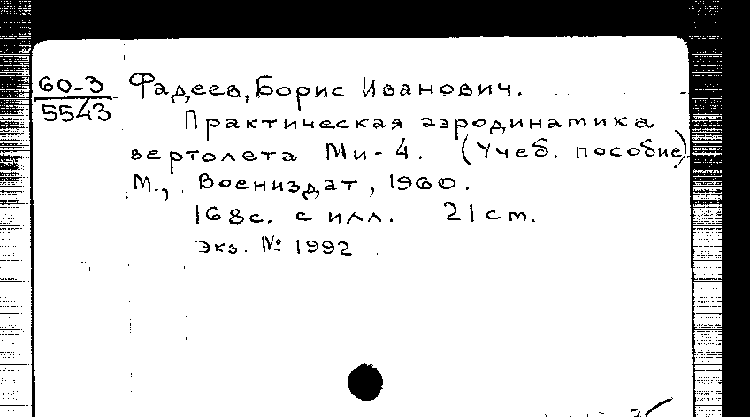 60-3 Фадеев, Борис Иванович.
5543
Практическая аэродинамика
вертолета Ми-4. (Учеб. пособие)
М., Воениздат, 1960.
168с. с илл. 21 см.
Экз. № 1992